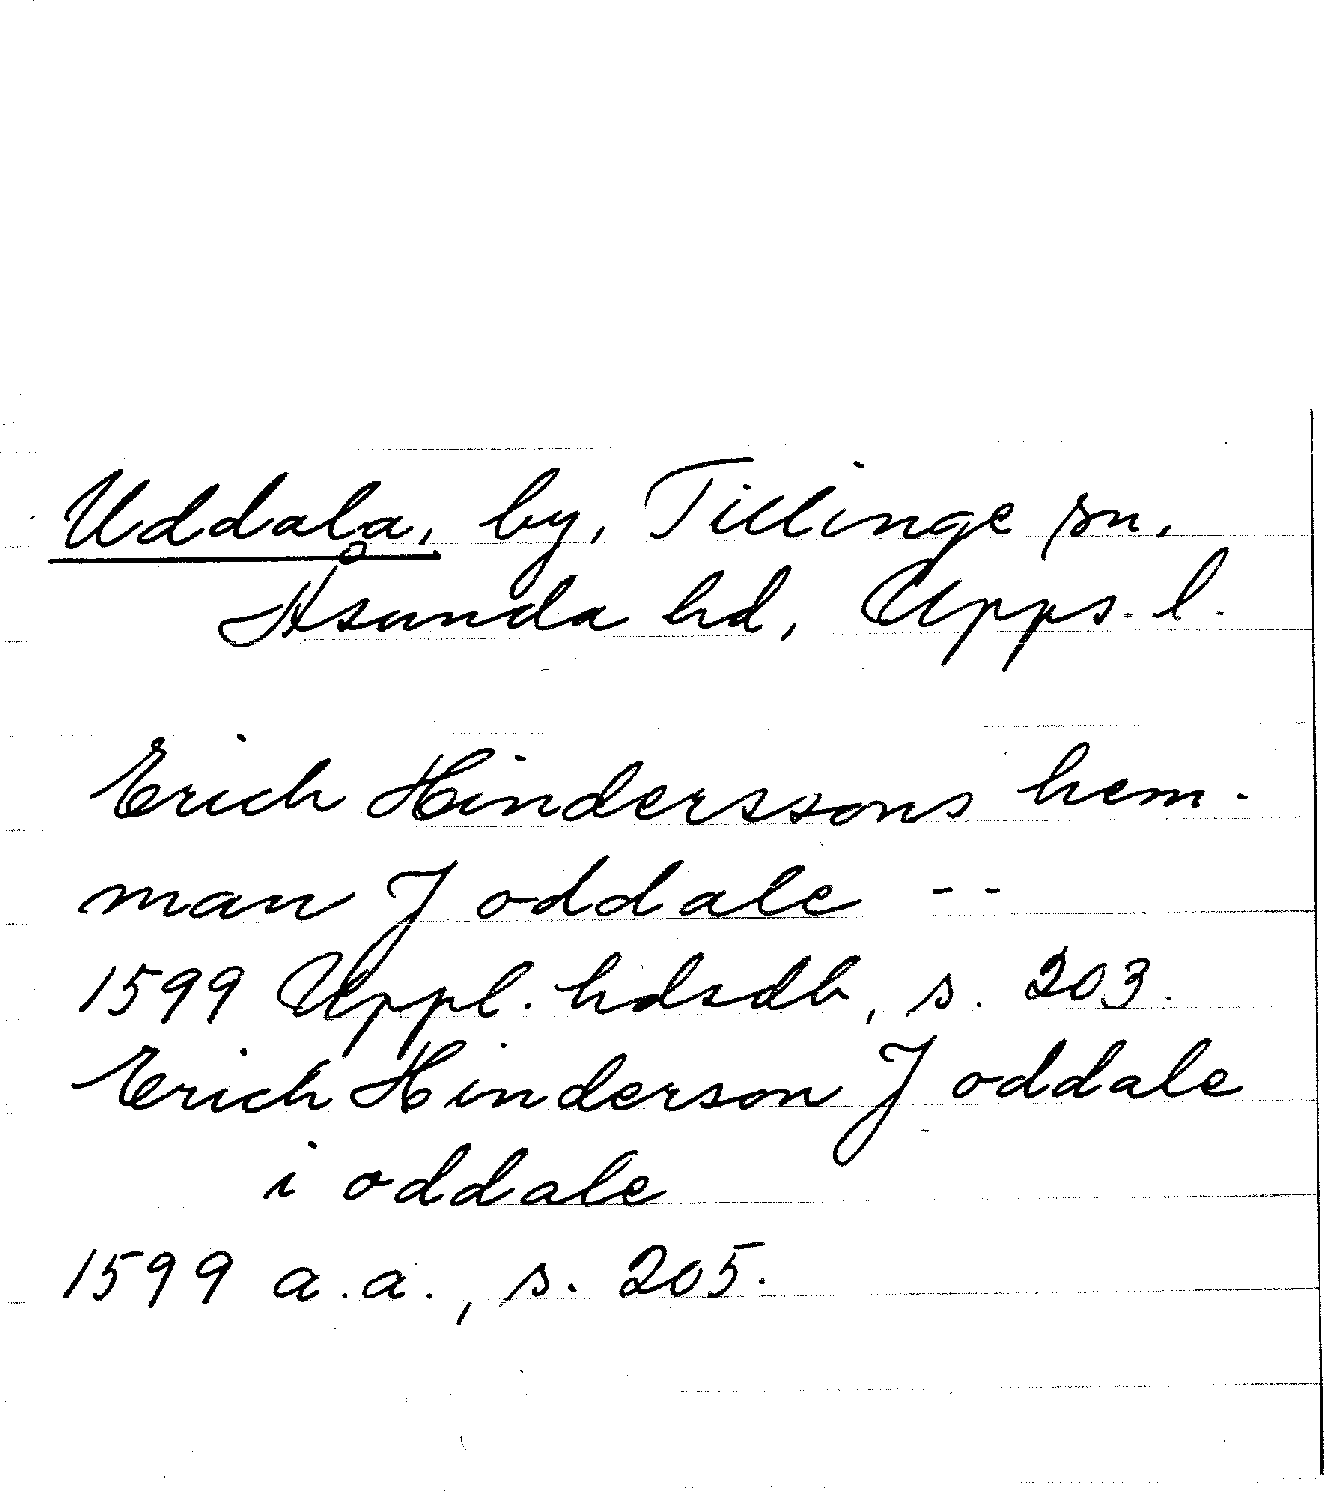 Uddala, by, Tillinge sn,
Åsunda hd, Upps. l.
Erich Hinderssons hem-
man J oddale --
1599 Uppl. hdsdb, s. 203.
Erich Hinderson J oddale
i oddale
1599 a.a., s. 205.